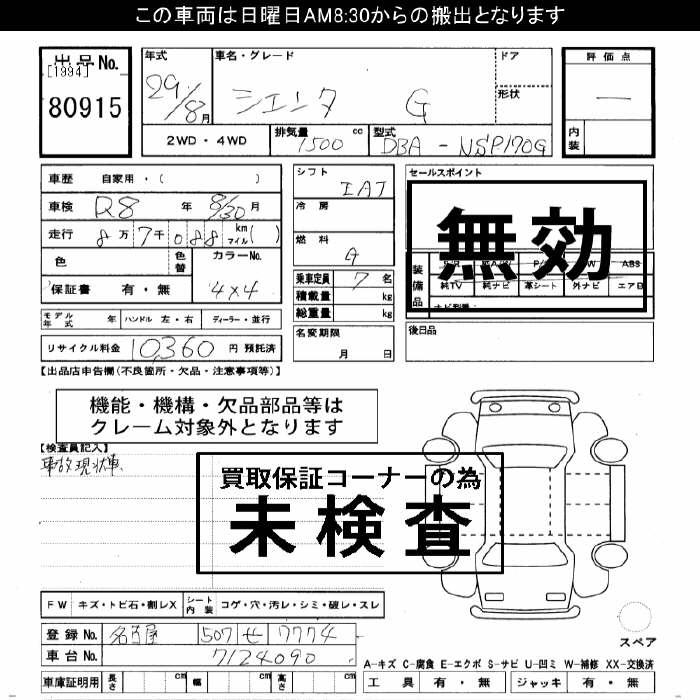 この車両は日曜日AM8:30からの搬出となります
出品No.
[1994]
80915
年式
29/8月
車名・グレード
シエンタ G
ドア
形状
評価点
―
内装
2WD・4WD
排気量 1500 cc
型式 DBA-NSP170G
車歴 自家用・( )
車検 R8 年 8/30 月
走行 8万7千088 km マイル( )
色
色替
カラーNo.
4×4
保証書 有・無
モデル年式 年
ハンドル 左・右
ディーラー・並行
リサイクル料金 10,360 円 預託済
シフト
IAT
冷房
燃料
G
乗車定員 7 名
積載量 kg
総重量 kg
名変期限
月 日
セールスポイント
無効
装備品
ABS
純TV 純ナビ 革シート 外ナビ エアB
後日品
【出品店申告欄(不良箇所・欠品・注意事項等)】
機能・機構・欠品部品等は
クレーム対象外となります
【検査員記入】
事故現状車
買取保証コーナーの為
未検査
FW キズ・トビ石・割レX シート内装 コゲ・穴・汚レ・シミ・破レ・スレ
登録No. 名古屋 507 せ 7774
車台No. 7124090
車庫証明用 長さ cm 幅 cm 高さ cm
スペア
A-キズ C-腐食 E-エクボ S-サビ U-凹ミ W-補修 XX-交換済
工具 有・無 ジャッキ 有・無